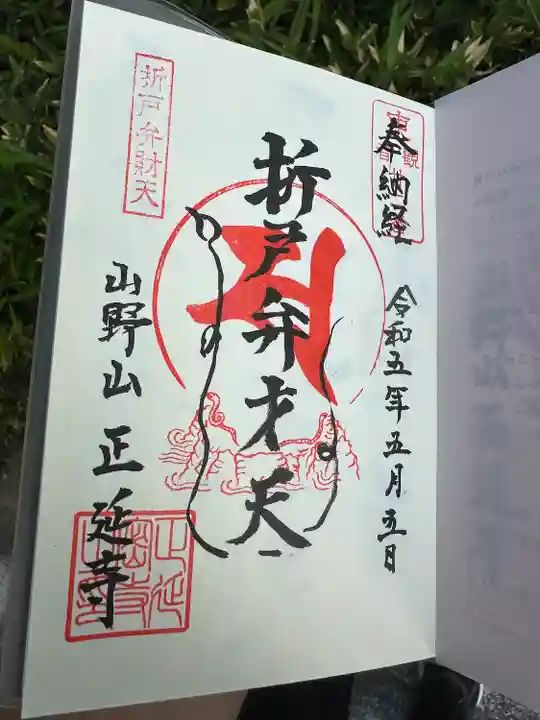 奉納経
令和五年五月五日
折戸弁才天
折戸弁財天
山野山 正延寺